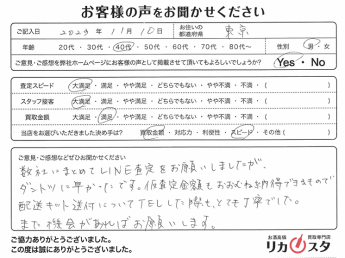 お客様の声をお聞かせください
ご記入日 2023年 11月 10日 お住いの都道府県 東京
年齢 20代・30代・40代・50代・60代・70代・80代〜 性別 男・女
ご意見・ご感想を弊社ホームページにお客様の声として掲載させて頂いてもよろしいでしょうか? Yes・No
査定スピード 大満足・満足・やや満足・どちらでもない・やや不満・不満・( )
スタッフ接客 大満足・満足・やや満足・どちらでもない・やや不満・不満・( )
買取金額 大満足・満足・やや満足・どちらでもない・やや不満・不満・( )
当店をお選びいただきました決め手は? 買取金額・対応力・利便性・スピード・その他( )
ご意見・ご感想などぜひお聞かせください
数社いまとめてLINE査定をお願いしましたが、
ダントツに早かったです。仮査定金額もおおむね納得できるもので
配送キット送付についてTELした際も、とても丁寧でした。
また機会があればお願いします。
ご協力ありがとうございました。
この度は誠にありがとうございました。
お酒高価買取専門店
リカスタ